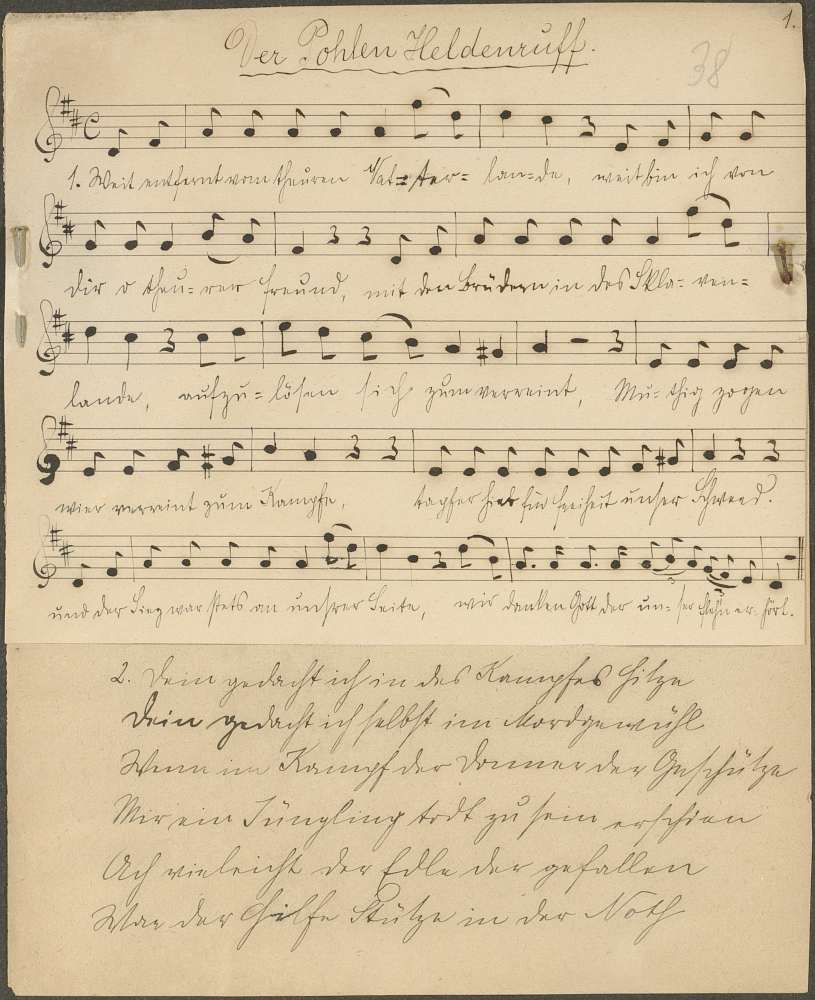 1.
Der Pohlen Heldenruff.
38
1. Weit entfernt vom theuren Vat=ter= lan=de, weit bin ich von
dir o theu=rer Freund, mit den Brüdern in des Skla=ven=
lande, aufzu=lösen sich zum verreint, Mu=thig zogen
wier verreint zum Kampfe, tapfer hieb für Freiheit unser Schwerd.
und der Sieg war stets an unsrer Seite, wir danken Gott der un=ser Flehn er=hört.
2. Dein gedacht ich in des Kampfes Hitze
Dein gedacht ich selbst im Mordgewühl
Wenn im Kampf der Donner der Geschütze
Mir ein Jüngling todt zu sein erschien
Ach vieleicht der Edle der gefallen
War der Hilfe Stütze in der Noth